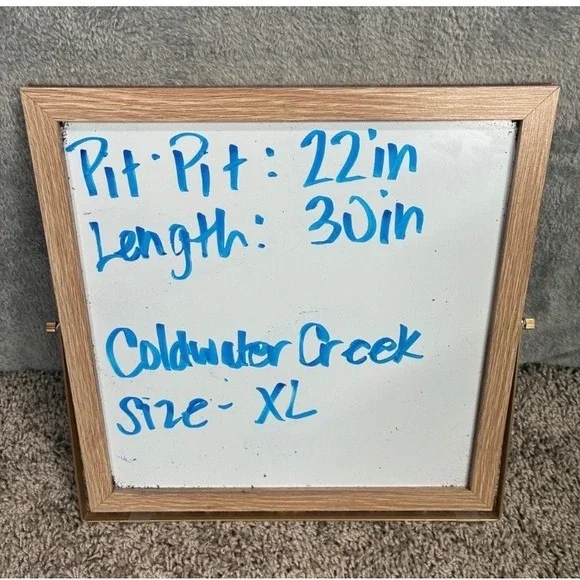 Pit-Pit: 22in
Length: 30in
Coldwater Creek
Size- XL